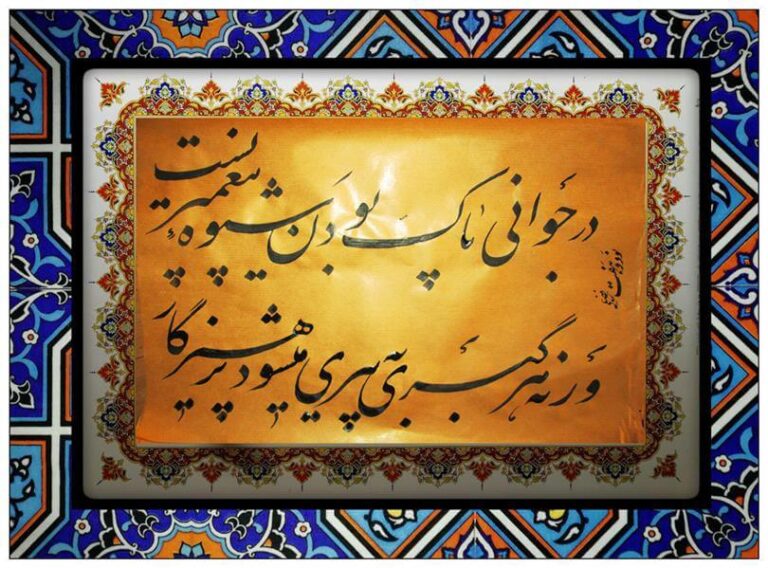 در جوانی پاک بودن شیوهٔ پیغمبریست
ورنه هر گبری به پیری میشود پرهیزگار